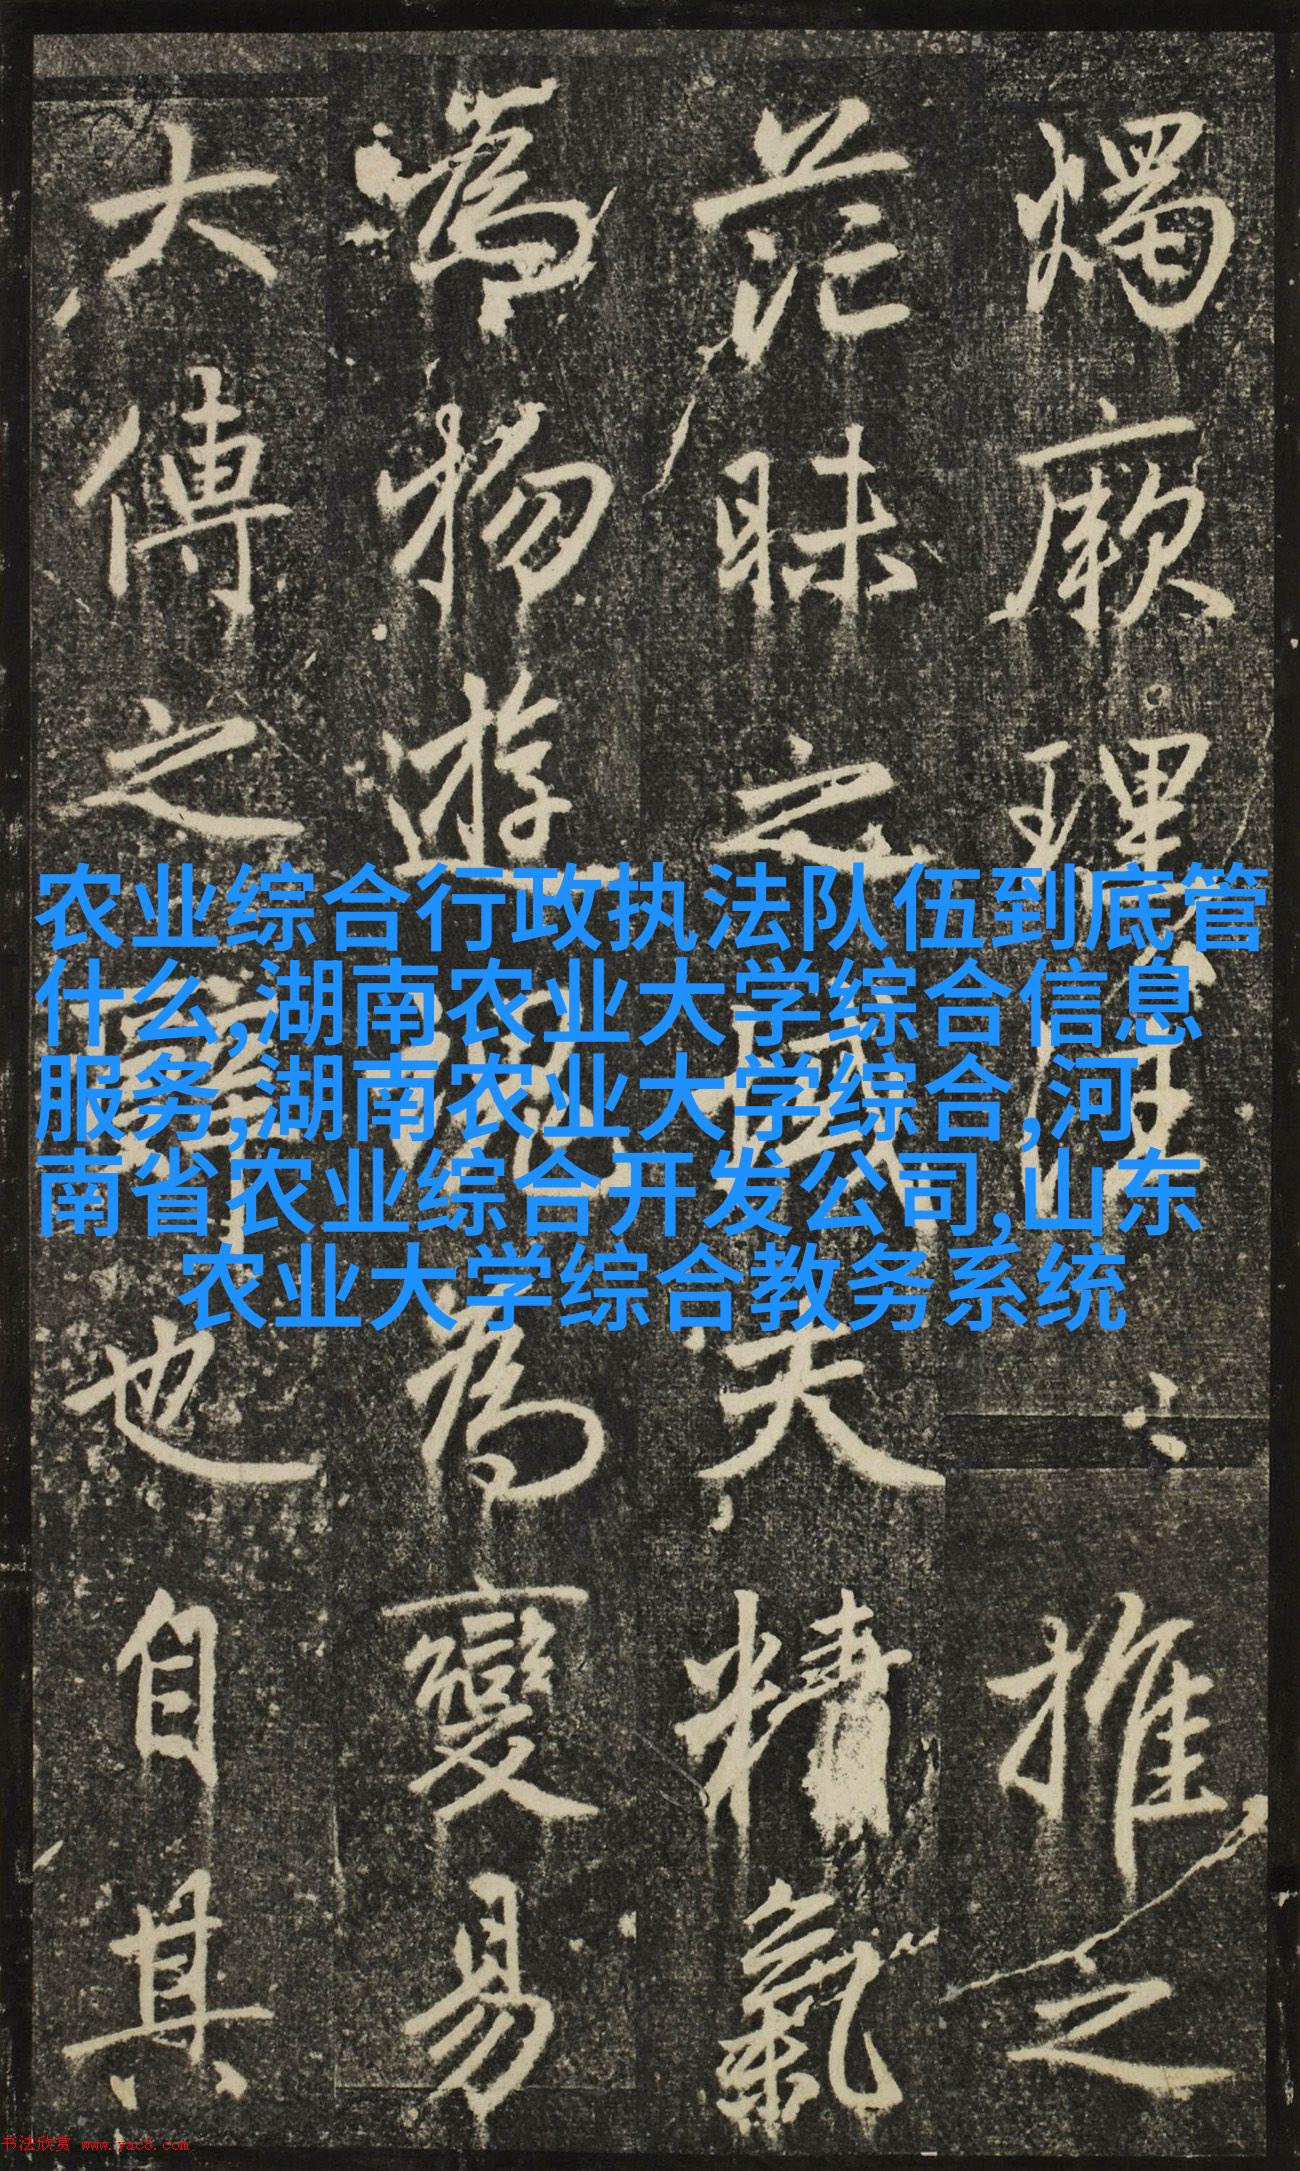 燭厥理推之
茫昧之域夫精氣
為物遊魂為變易
大傳之辭也自其
农业综合行政执法队伍到底管
什么,湖南农业大学综合信息
服务,湖南农业大学综合,河
南省农业综合开发公司,山东
农业大学综合教务系统
书法欣赏 www.yac8.com